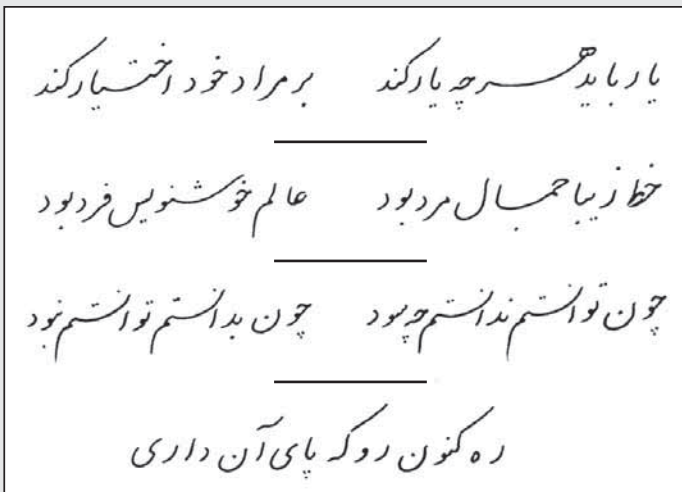 یار باید هر چه یار کند بر مراد خود اختیار کند
خط زیبا جمال مرد بود عالم خوشنویس فرد بود
چون توانستم ندانستم چه سود چون بدانستم توانستم نبود
ره کنون رو که پای آن داری